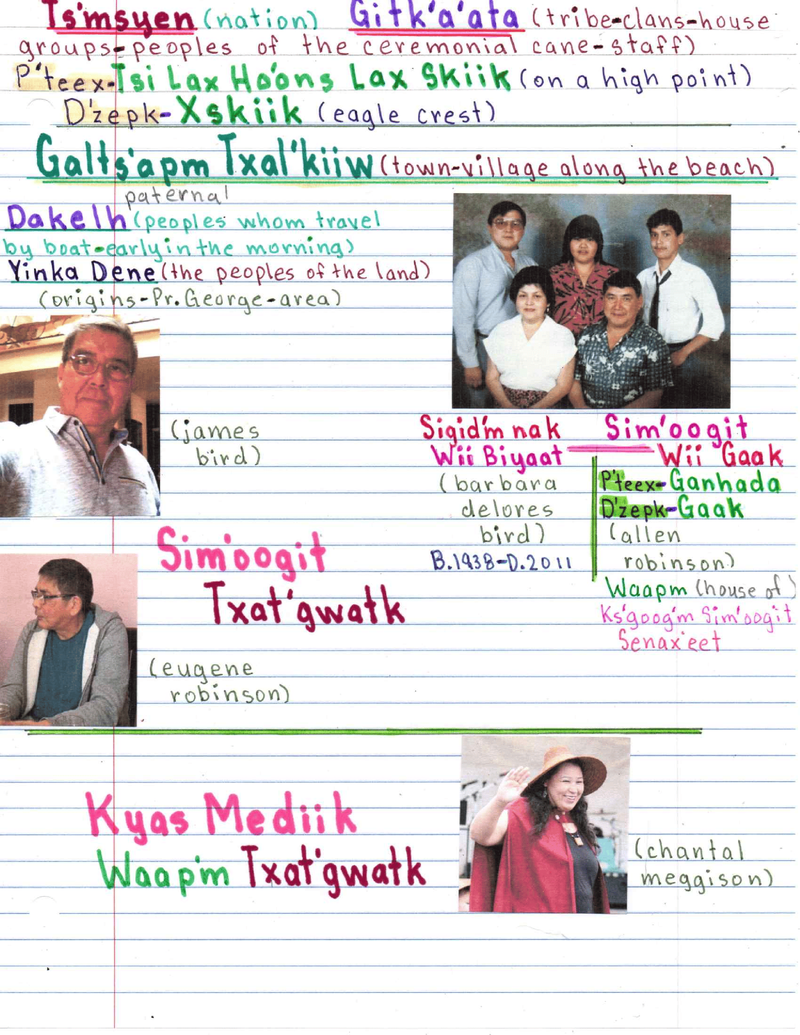 Ts'msyen (nation) Gitk'a'ata (tribe-clans-house
groups-peoples of the ceremonial cane-staff)
P'teex-Tsi Lax Ho'ons Lax Skiik (on a high point)
D'zepk-Xskiik (eagle crest)
Galts'apm Txal'kiiw (town-village along the beach)
paternal
Dakelh (peoples whom travel
by boat-early in the morning)
Yinka Dene (the peoples of the land)
(origins-Pr. George-area)
(james
bird)
Sigid'm nak
Wii Biyaat
(barbara
delores
bird)
B.1938-D.2011
Sim'oogit
Wii Gaak
P'teex-Ganhada
D'zepk-Gaak
(allen
robinson)
Waapm (house of)
Ks'goog'm Sim'oogit
Senax'eet
Sim'oogit
Txat'gwatk
(eugene
robinson)
Kyas Mediik
Waap'm Txat'gwatk
(chantal
meggison)